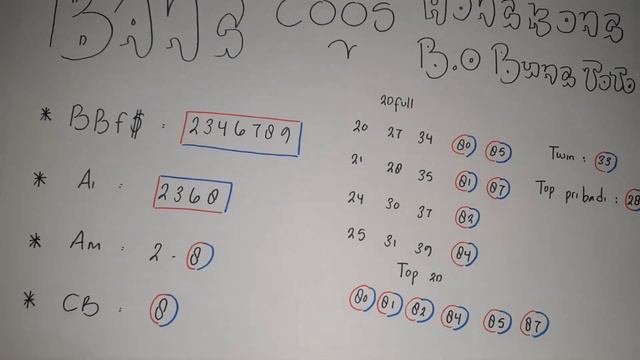 BANG COOS HONGKONG
B.O BUNG TOTO
* BBf$ : 2346789
2D full
20 27 34 80 85
Twin : 33
* Ai : 2368
21 28 35 81 87
Top pribadi : 28
24 30 37 82
* Am : 2 - 8
25 31 39 84
Top 2D
* CB : 8
80 81 82 84 85 87